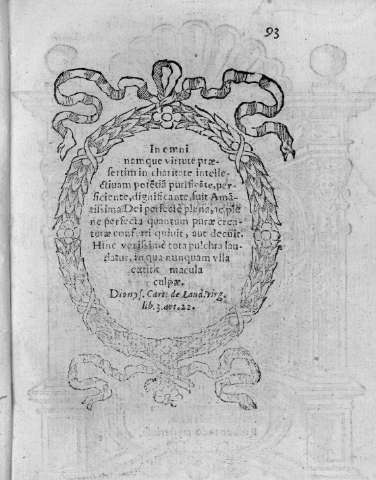 93
In omni
namque virtute præ-
sertim in charitate intelle-
ctivam potẽtiã purificãte, per-
ficiente, dignificante, fuit Amã-
tissima Dei perfectè plena, ac ple
ne perfecta quantum puræ crea-
turæ conferri quivit, aut decuit.
Hinc verissimè tota pulchra lau-
datur, in qua nunquam vlla
extitit macula
culpæ.
Dionys. Cart. de Laud. Virg.
lib. 3. art. 22.